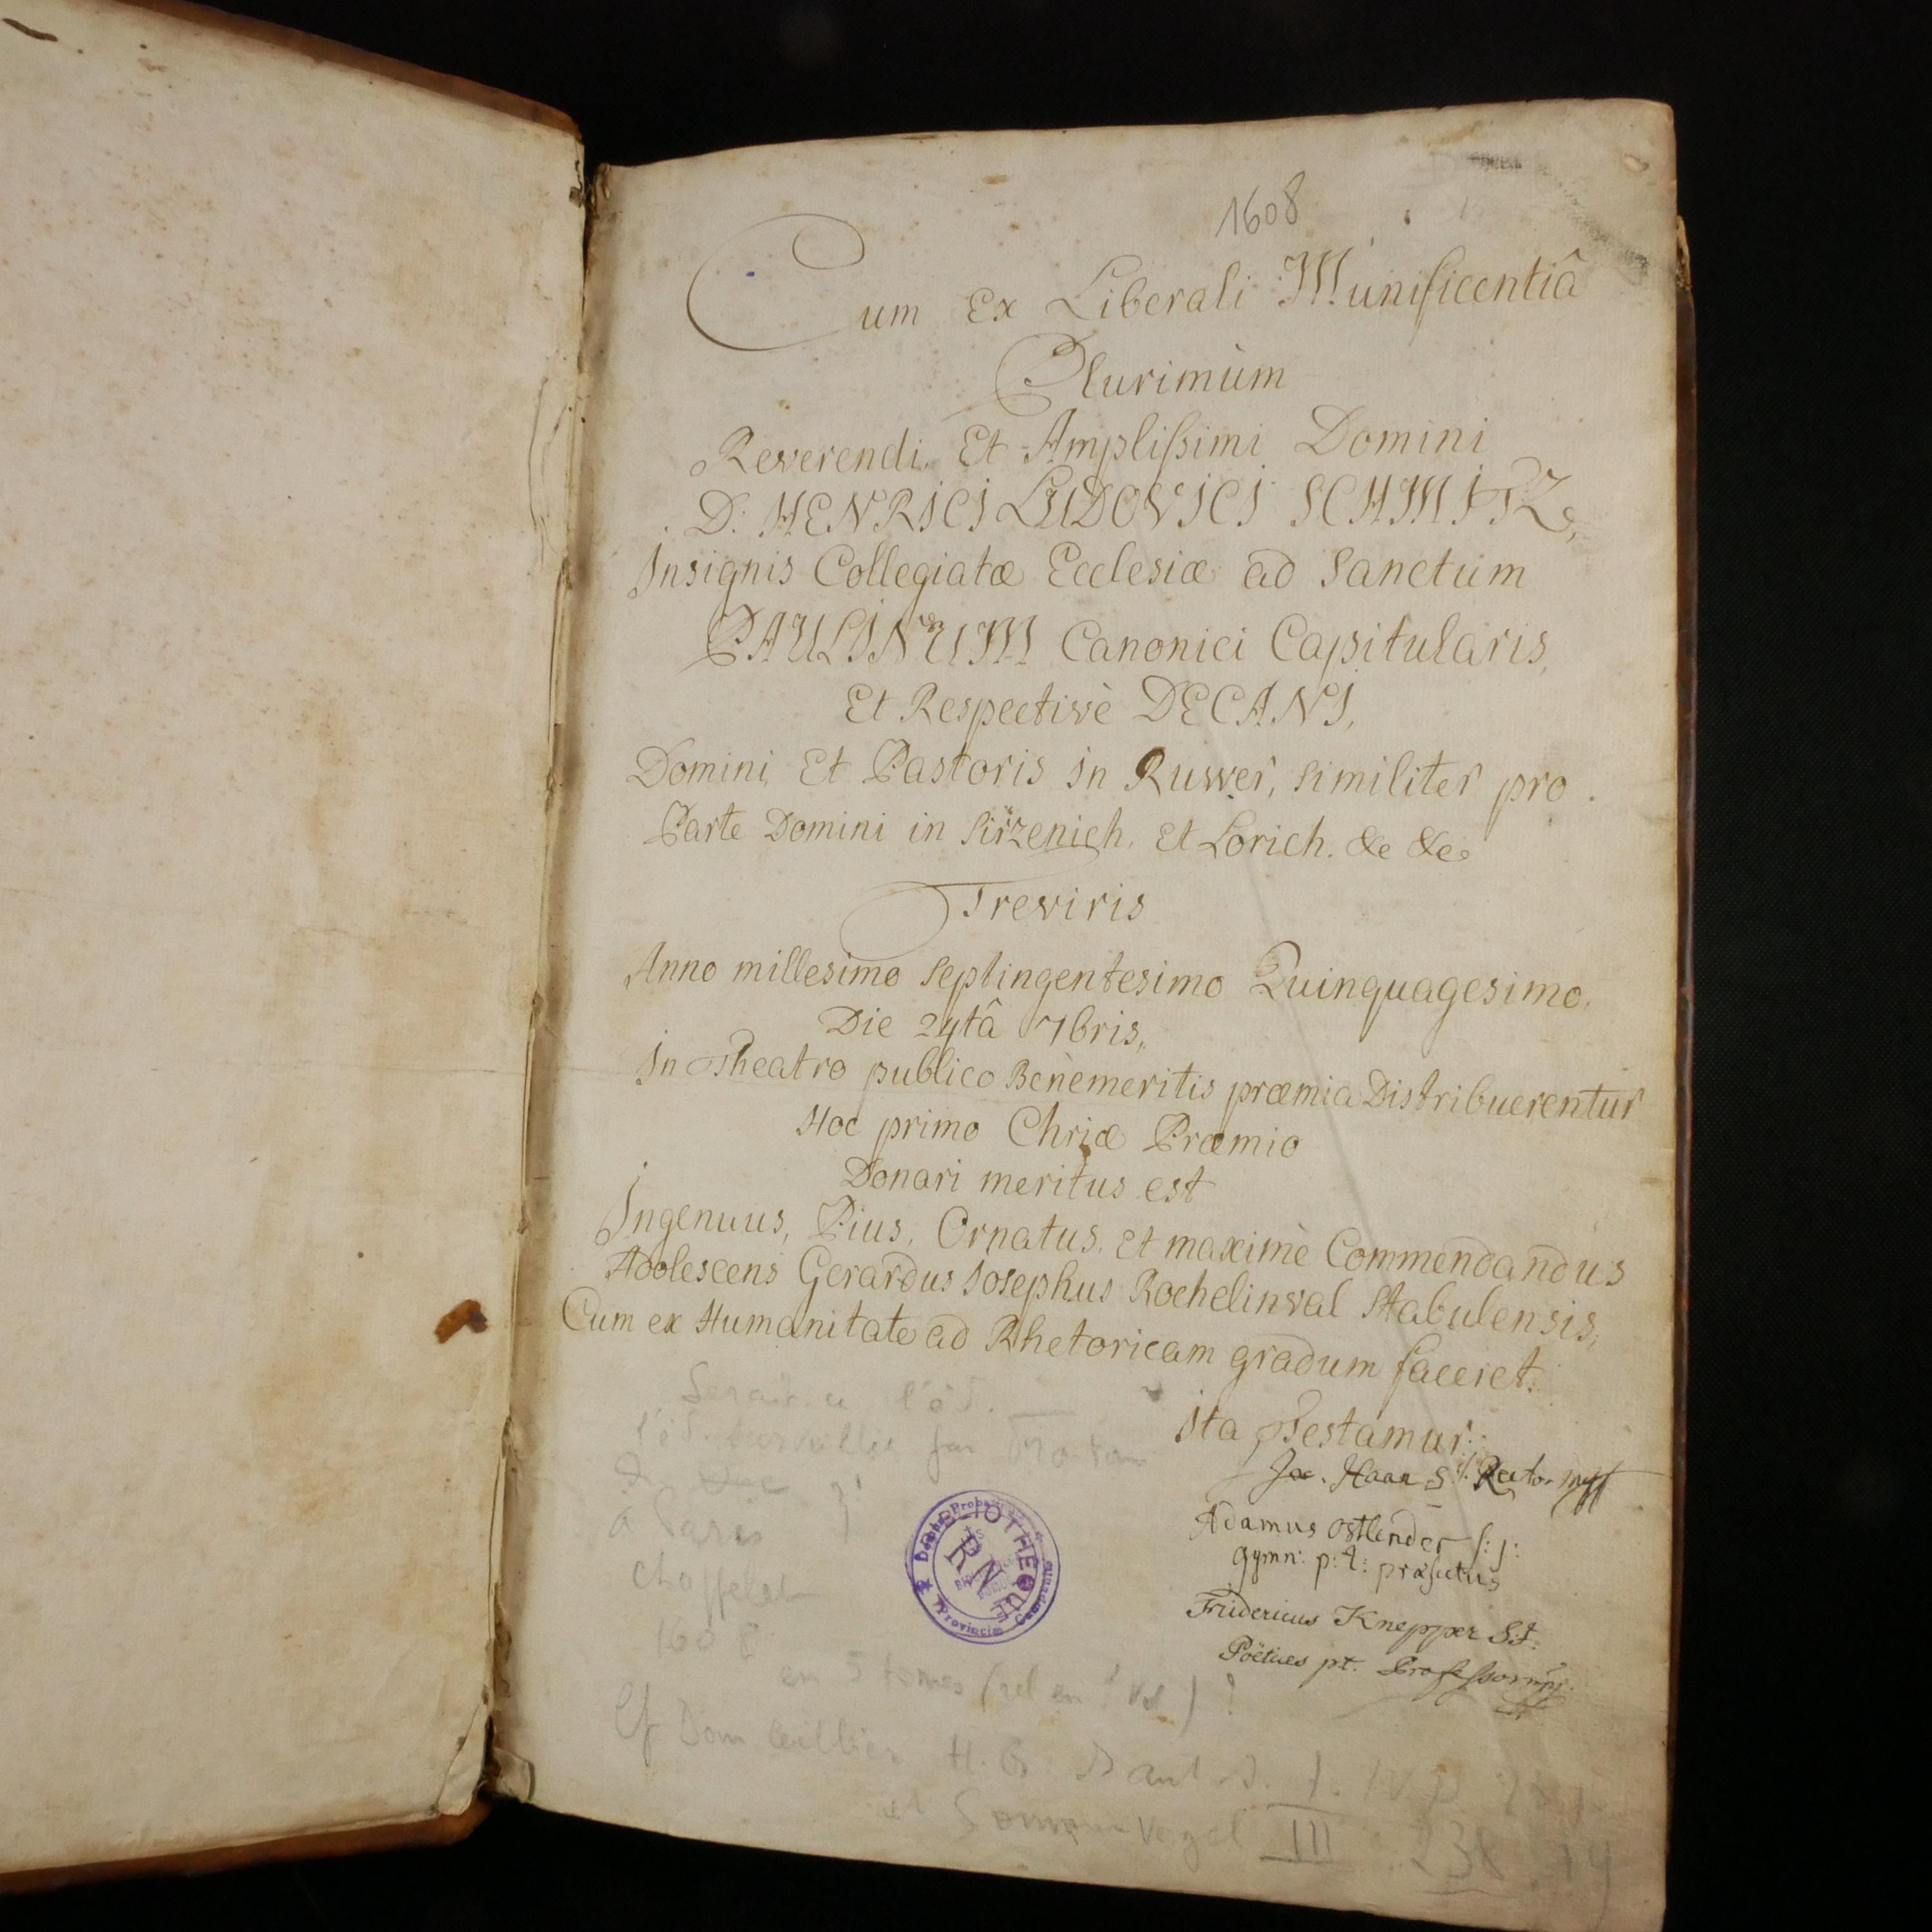 1608
Cum Ex Liberali Munificentiâ
Plurimùm
Reverendi Et Amplissimi Domini
D: HENRICI LUDOVICI SCHMITZ,
Insignis Collegiatæ Ecclesiæ ad Sanctum
PAULINUM Canonici Capitularis,
Et Respectivè DECANI,
Domini Et Pastoris in Ruwer, Similiter pro
Parte Domini in Sirzenich, Et Lorich. &c &c.
Treviris
Anno millesimo Septingentesimo Quinquagesimo,
Die 24tâ 7bris,
In Theatro publico Benèmeritis præmia Distribuerentur
Hoc primo Chriæ Præmio
Donari meritus est
Ingenuus, Pius, Ornatus, Et maximè Commendandus
Adolescens Gerardus Josephus Rochelinval Stabulensis,
Cum ex Humanitate ad Rhetoricam gradum faceret.
Ita Testamur:
Jac. Haan S:J. Rector mpp
Adamus Ostlender S:J:
Gymn: p:t: præfectus
Fridericus Knepper S:J.
Poëtices pt. Professor mp
BIBLIOTHEQUE
à Paris
chappelet
1608
en 5 tomes (rel en 1 vol) ?
Cf Dom Ceillier H. G.
et Sommervogel III 238